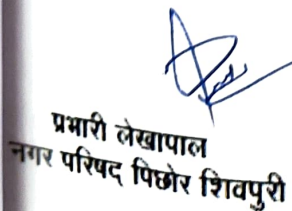 प्रभारी लेखापाल
नगर परिषद पिछोर शिवपुरी